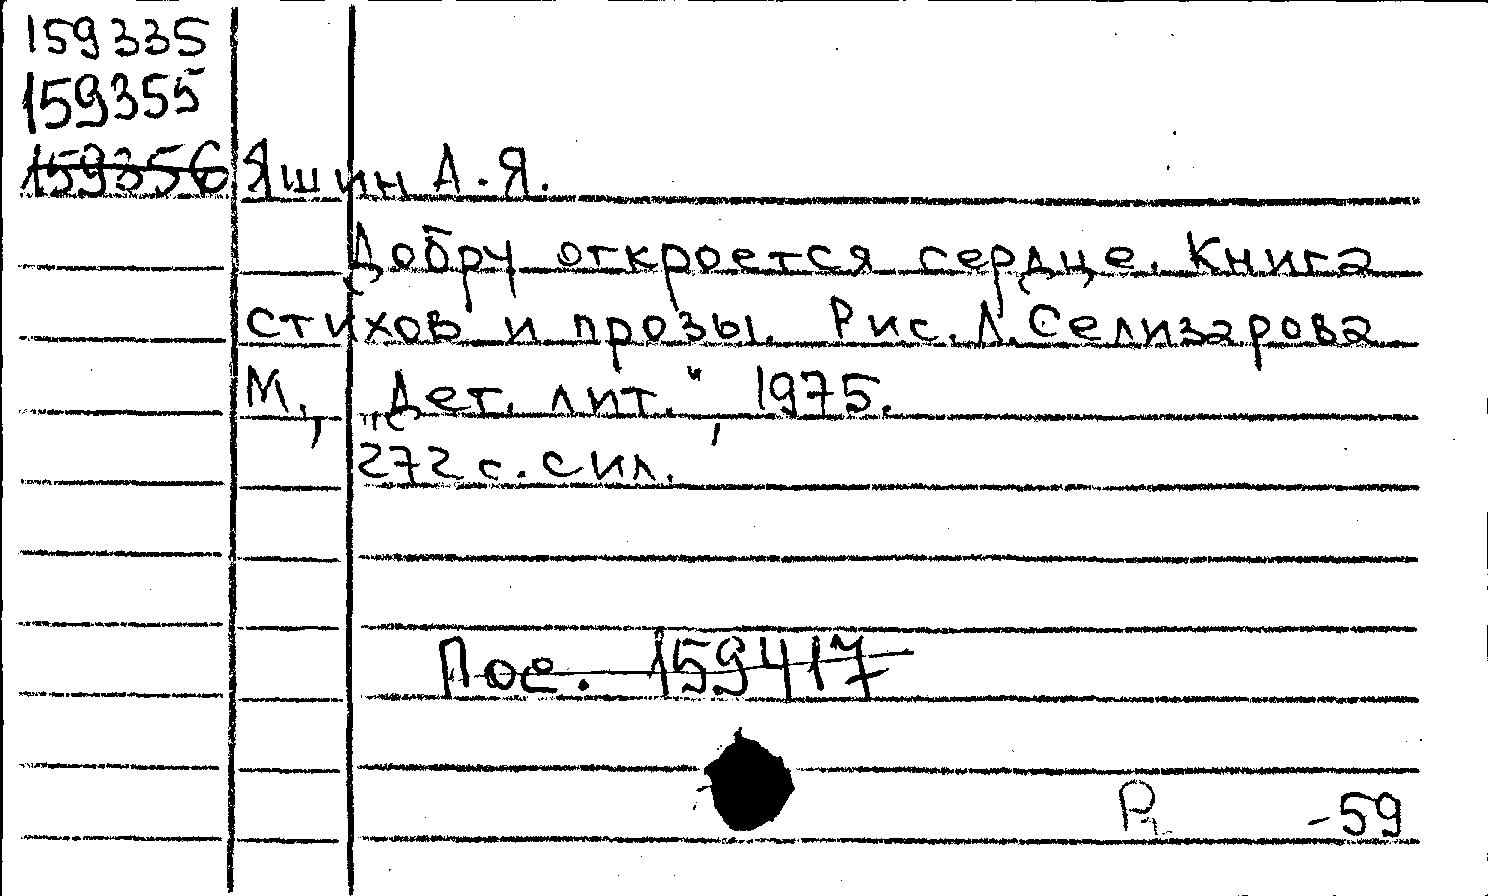 159335
159355
159356 Яшин А.Я.
Добру откроется сердце. Книга
стихов и прозы. Рис. Л. Селизарова
М., „Дет. лит.“, 1975.
272 с. с ил.
Пое. 159417
Р2 -59